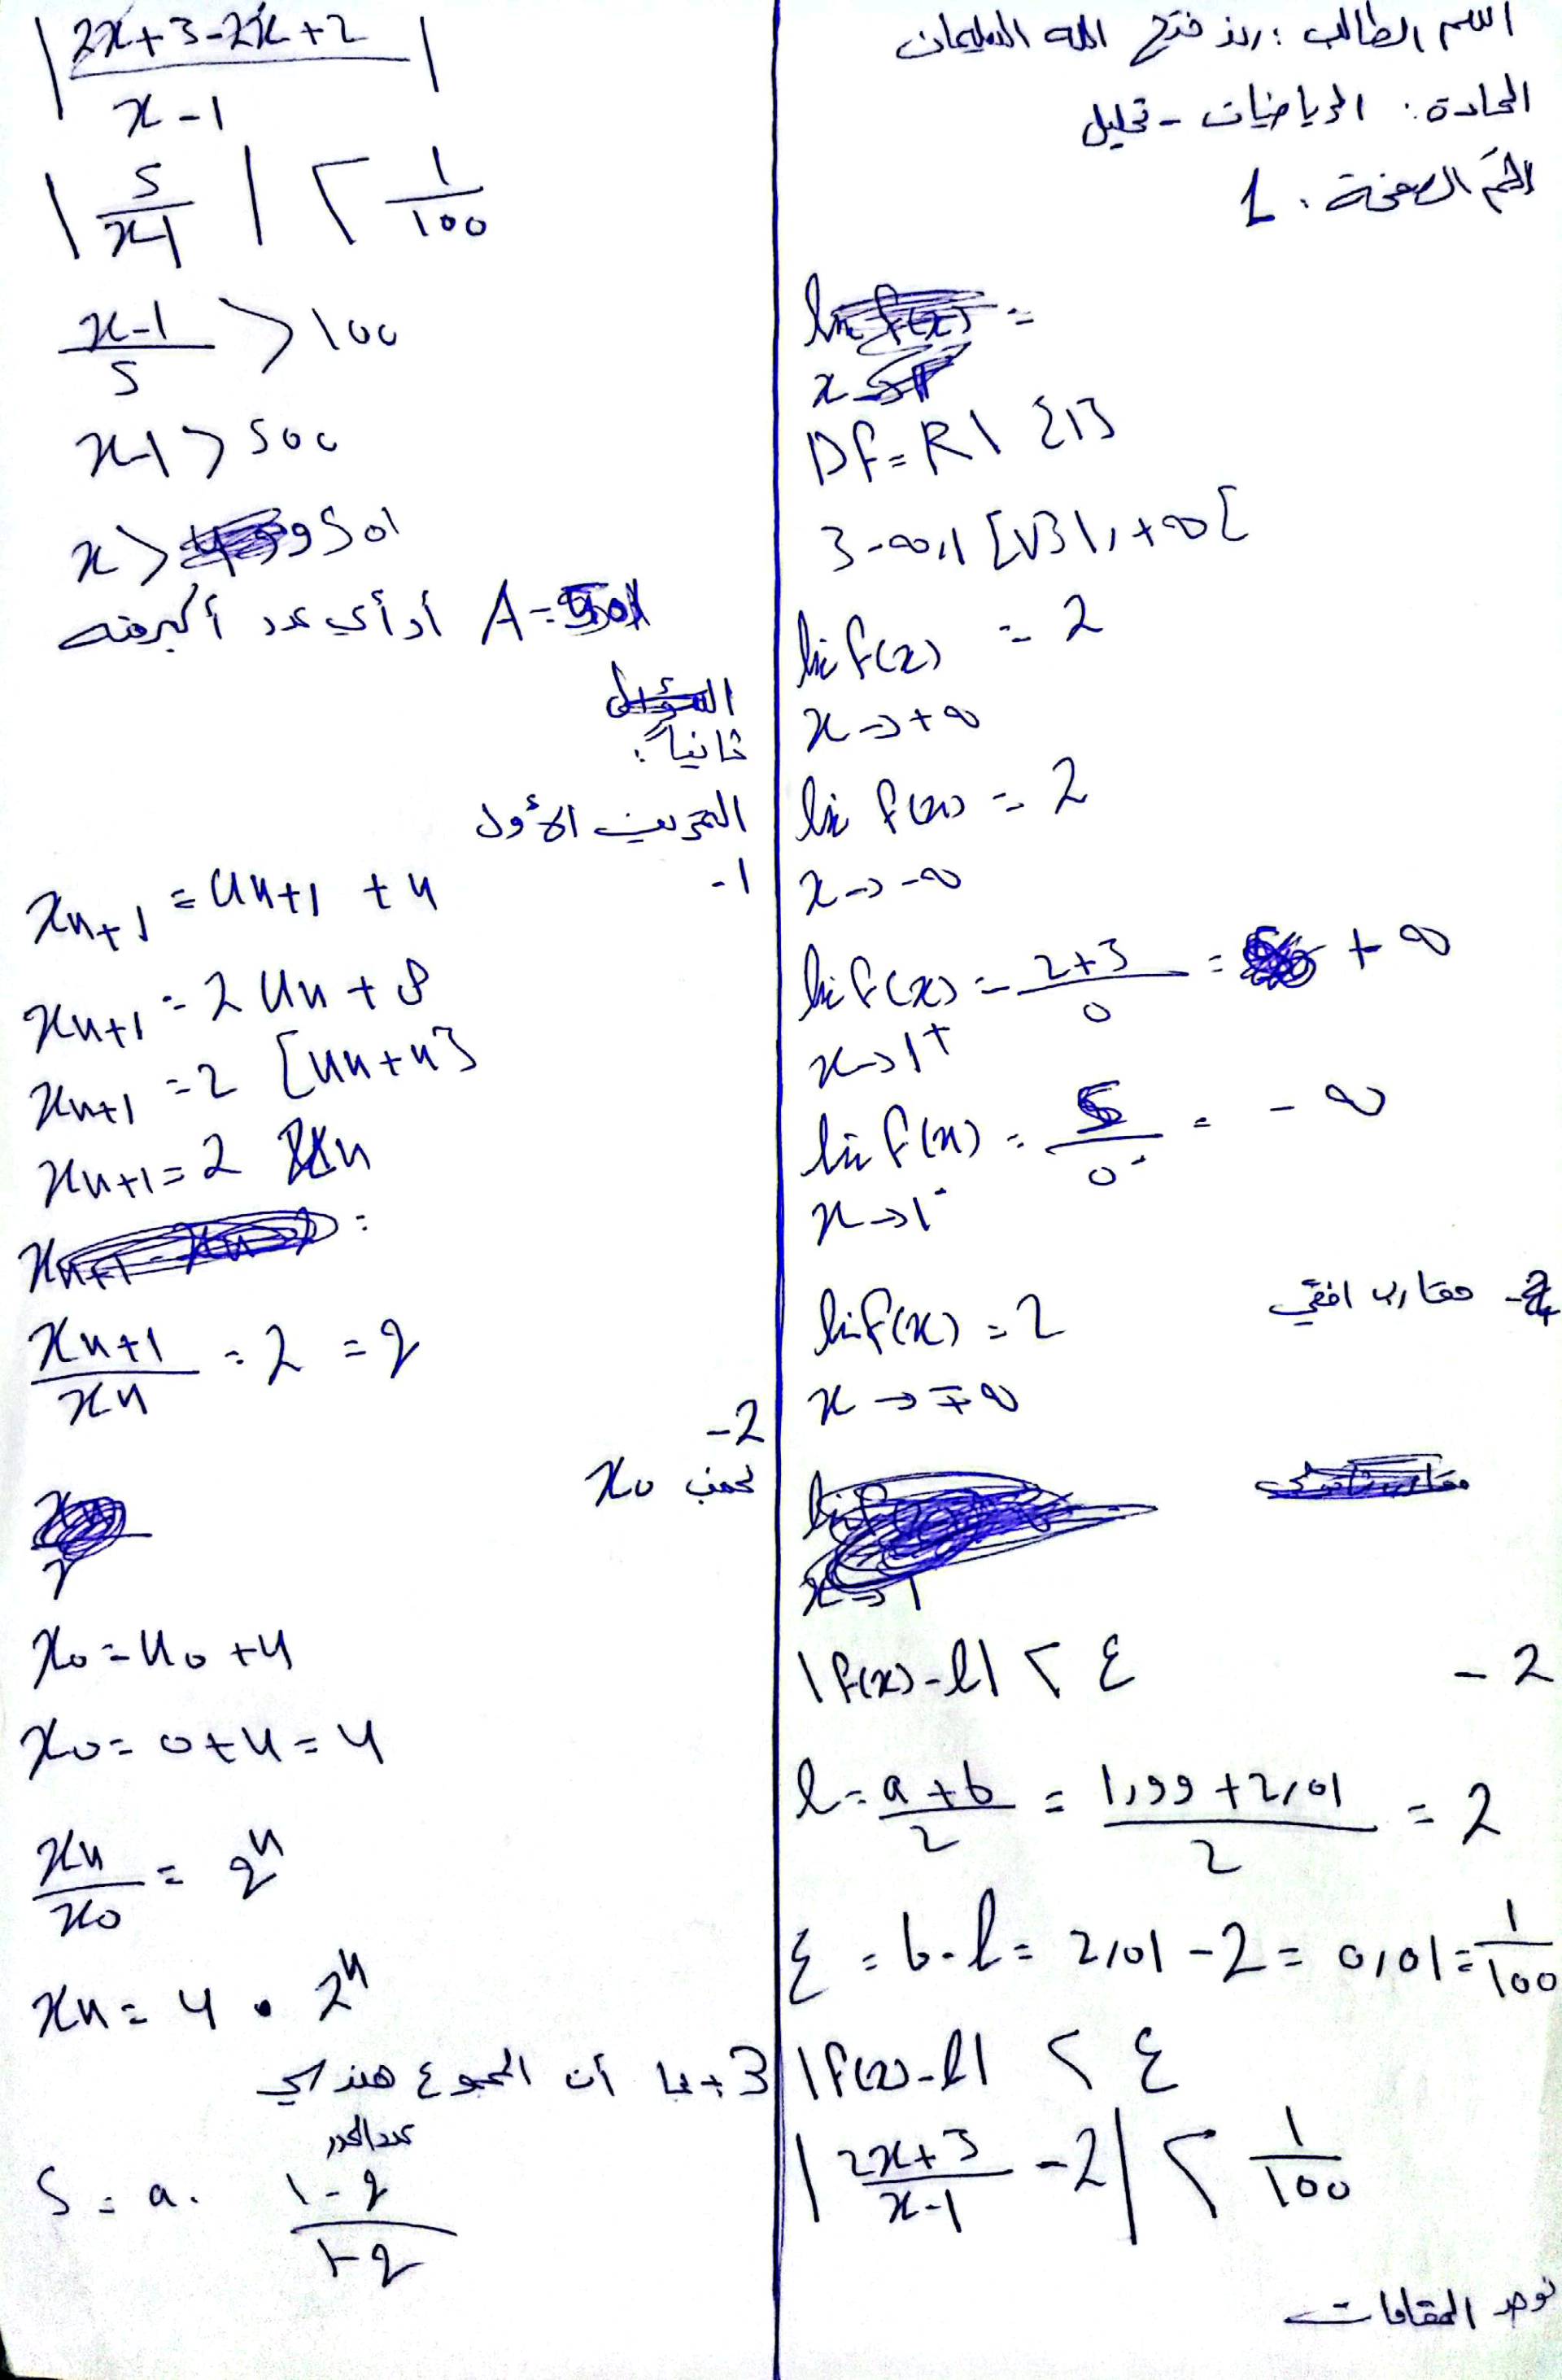 اسم الطالب: رند فتح الله السليمان
المادة: الرياضيات - تحليل
رقم الصفحة: 1
Df = R \ {1}
]-∞, 1[ ∪ ]1, +∞[
lim f(x) = 2
x → +∞
lim f(x) = 2
x → -∞
lim f(x) = 2+3 / 0 = +∞
x → 1+
lim f(x) = 5 / 0- = -∞
x → 1-
مقارب افقي
lim f(x) = 2
x → ∓∞
2 -
|f(x) - l| < ε
l = a+b / 2 = 1,99 + 2,01 / 2 = 2
ε = b - l = 2,01 - 2 = 0,01 = 1/100
|f(x) - l| < ε
|2x+3 / x-1 - 2| < 1/100
نوحد المقامات
|2x+3-2x+2 / x-1|
|5 / x-1| < 1/100
x-1 / 5 > 100
x-1 > 500
x > 501
A = 501 أو أي عدد أكبر منه
ثانياً:
التمرين الأول
1-
xn+1 = un+1 + 4
xn+1 = 2un + 8
xn+1 = 2 [un + 4]
xn+1 = 2 xn
xn+1 / xn = 2 = q
2-
x0
x0 = u0 + 4
x0 = 0 + 4 = 4
xn / x0 = q^n
xn = 4 • 2^n
3 + بما أن المجموع هندسي
S = a. 1 - q^عدد الحدود / 1 - q